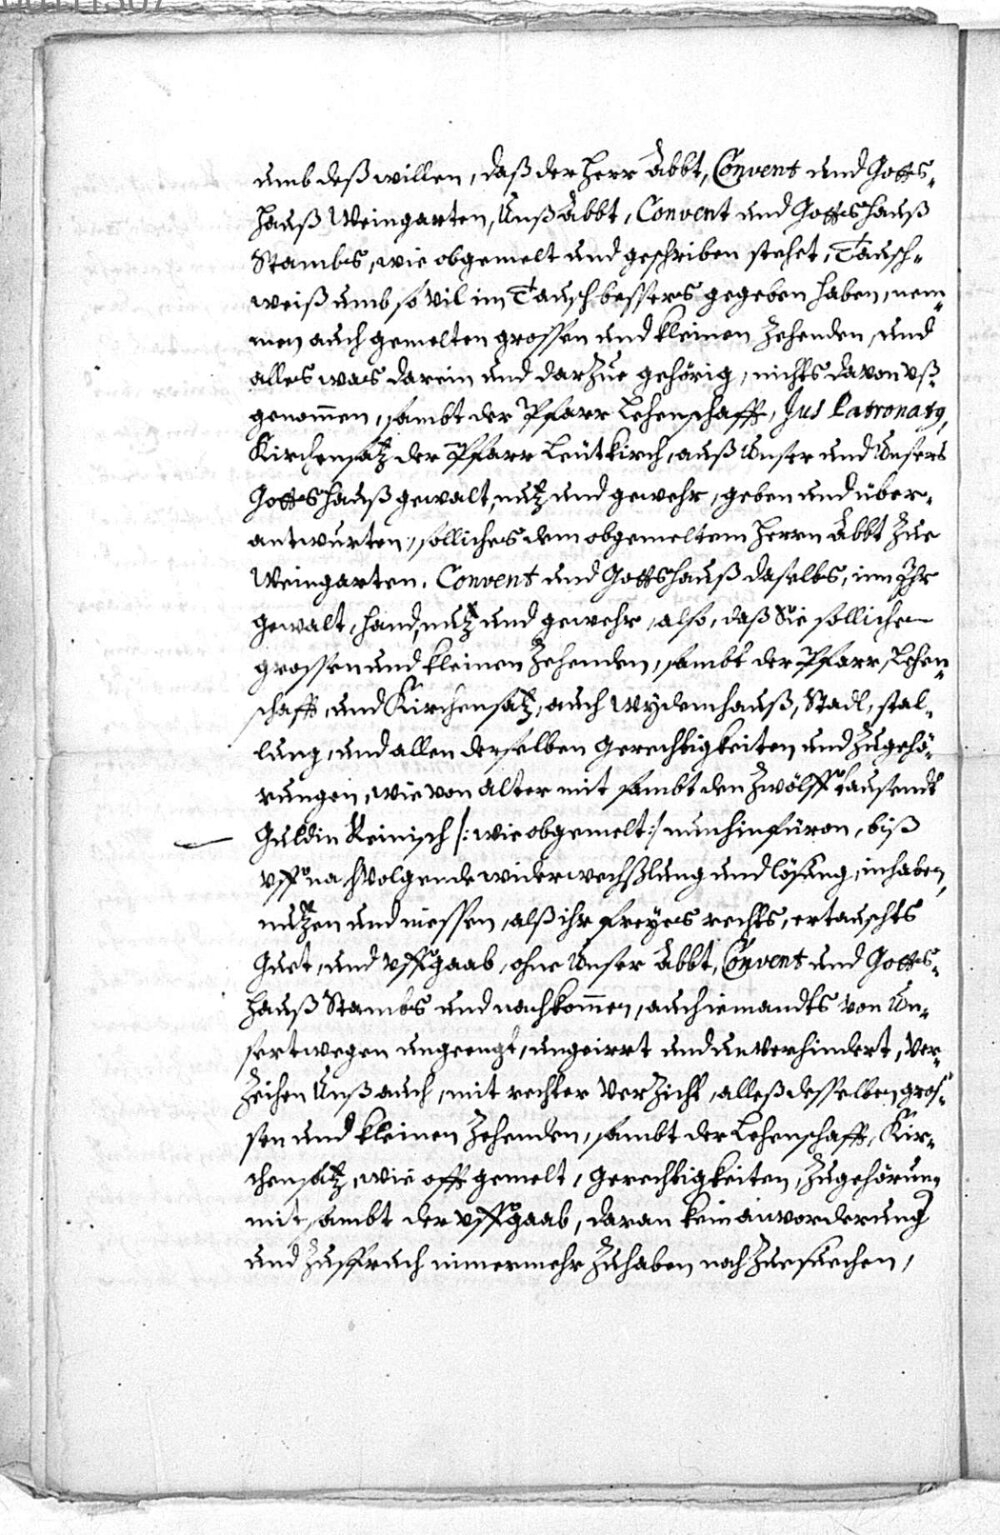 umb deß willen, daß der Herr Abbt, Convent und Gotts-
hauß Weingarten, Unß Abbt, Convent und Gottshauß
Stambs, wie obgemelt und geschriben stehet, Tausch-
weiß umb so vil im Tausch bessers gegeben haben, nem-
men auch gemelten grossen und kleinen Zehenden, und
alles was darein und darzue gehörig, nichts davon uß-
genommen, sambt der Pfarr Lehenschafft, Jus Patronaty,
Kirchensatz der Pfarr Leütkirch, auß Unser und Unsers
Gottshauß gewalt, nutz und gewehr, geben und über-
antwurten, solliches dem obgemeltem Herrn Abbt zue
Weingarten, Convent und Gottshauß daselbs, inn Ihr
gewalt, hand, nutz und gewehr, also, daß Sie sollichen
grossen und kleinen Zehenden, sambt der Pfarr, Lehen-
schafft, und Kirchensatz, auch Wydemhauß, Stadl, stal-
lung, und allen derselben Gerechtigkeiten und Zugehö-
rungen, wie von alter mit sambt den Zwölff tausendt
Guldin Reinisch /: wie obgemelt :/ nun hinfüron, biß
uff nachvolgende widerwechßlung und lösung, inhaben,
nutzen und niessen, alß ihr freyes rechts, ertauschts
Guet, und uffgaab, ohne Unser Abbt, Convent und Gotts-
hauß Stambs und nachkommen, auch iemandts von Un-
sertwegen ungeengt, ungeirrt und unverhindert, Ver-
zeihen Unß auch, mit rechter Verzicht, alleß desselben gros-
sen und kleinen Zehenden, sambt der Lehenschafft, Kir-
chensatz, wie offt gemelt, Gerechtigkeiten, Zugehörung
mit sambt der uffgaab, daran kein anvorderung
und Zuspruch nimmermehr Zuhaben noch Zuesuechen,